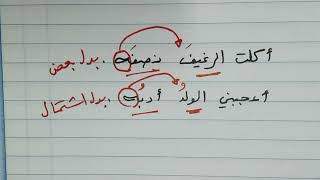 أكلت الرغيفَ نصفَه . بدل بعض
أعجبني الولدُ أدبُه . بدل اشتمال